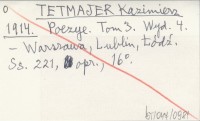 0 TETMAJER Kazimierz
1914. Poezye. Tom 3. Wyd. 4.
- Warszawa, Lublin, Łódź.
Ss. 221, opr., 16°.